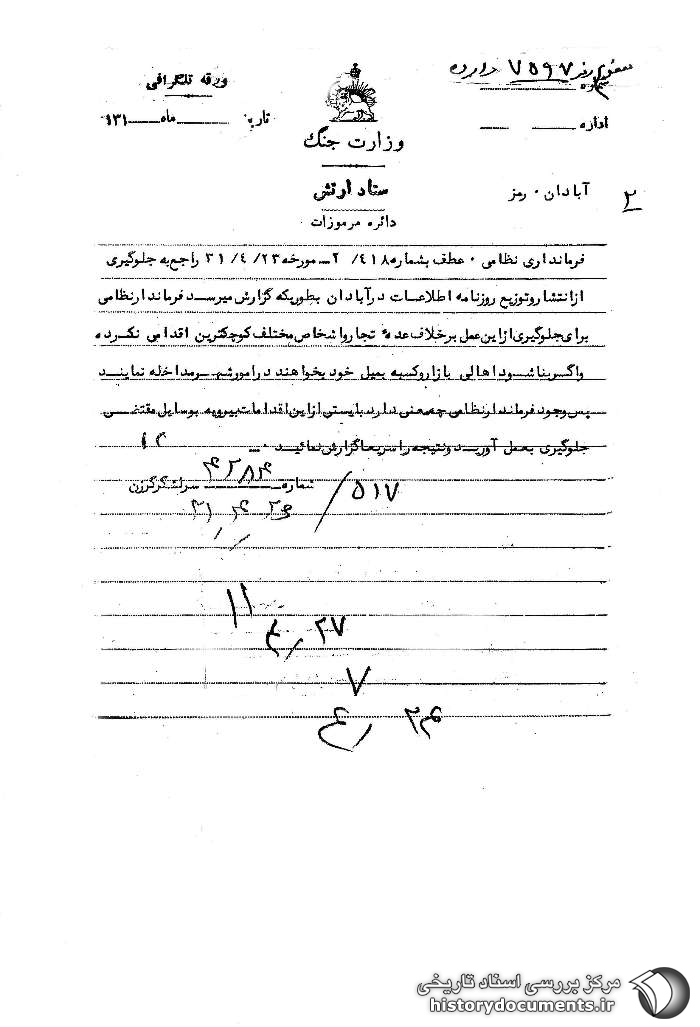 رمز ۷۵۹۷ وارده
شماره
ورقه تلگرافی
اداره
تاریخ ماه ۱۳۱
وزارت جنگ
ستاد ارتش
دائره مرموزات
۲
آبادان ۰ رمز
فرمانداری نظامی ۰ عطف بشماره ۴۱۸ /۲ – مورخه ۲۳/ ۴/ ۳۱ راجع به جلوگیری
از انتشار و توزیع روزنامه اطلاعات در آبادان بطوریکه گزارش میرسد فرماندار نظامی
برای جلوگیری از این عمل برخلاف عده تجار و اشخاص مختلف کوچکترین اقدامی نکرده
واگر بنا شود اهالی بازار و کسبه بمیل خود بخواهند در امور شهر مداخله نمایند
پس وجود فرماندار نظامی چه معنی دارد بایستی از این اقدامات بیرویه بوسایل مقتضی
جلوگیری بعمل آورید و نتیجه را سریعا گزارش نمائید ۰ –
شماره ۴۲۸۴ سرلشگر گرزن
۵۱۷/
۱۱
۲۷ ر۴
۷
۲۴ ر۴
مرکز بررسی اسناد تاریخی
historydocuments.ir